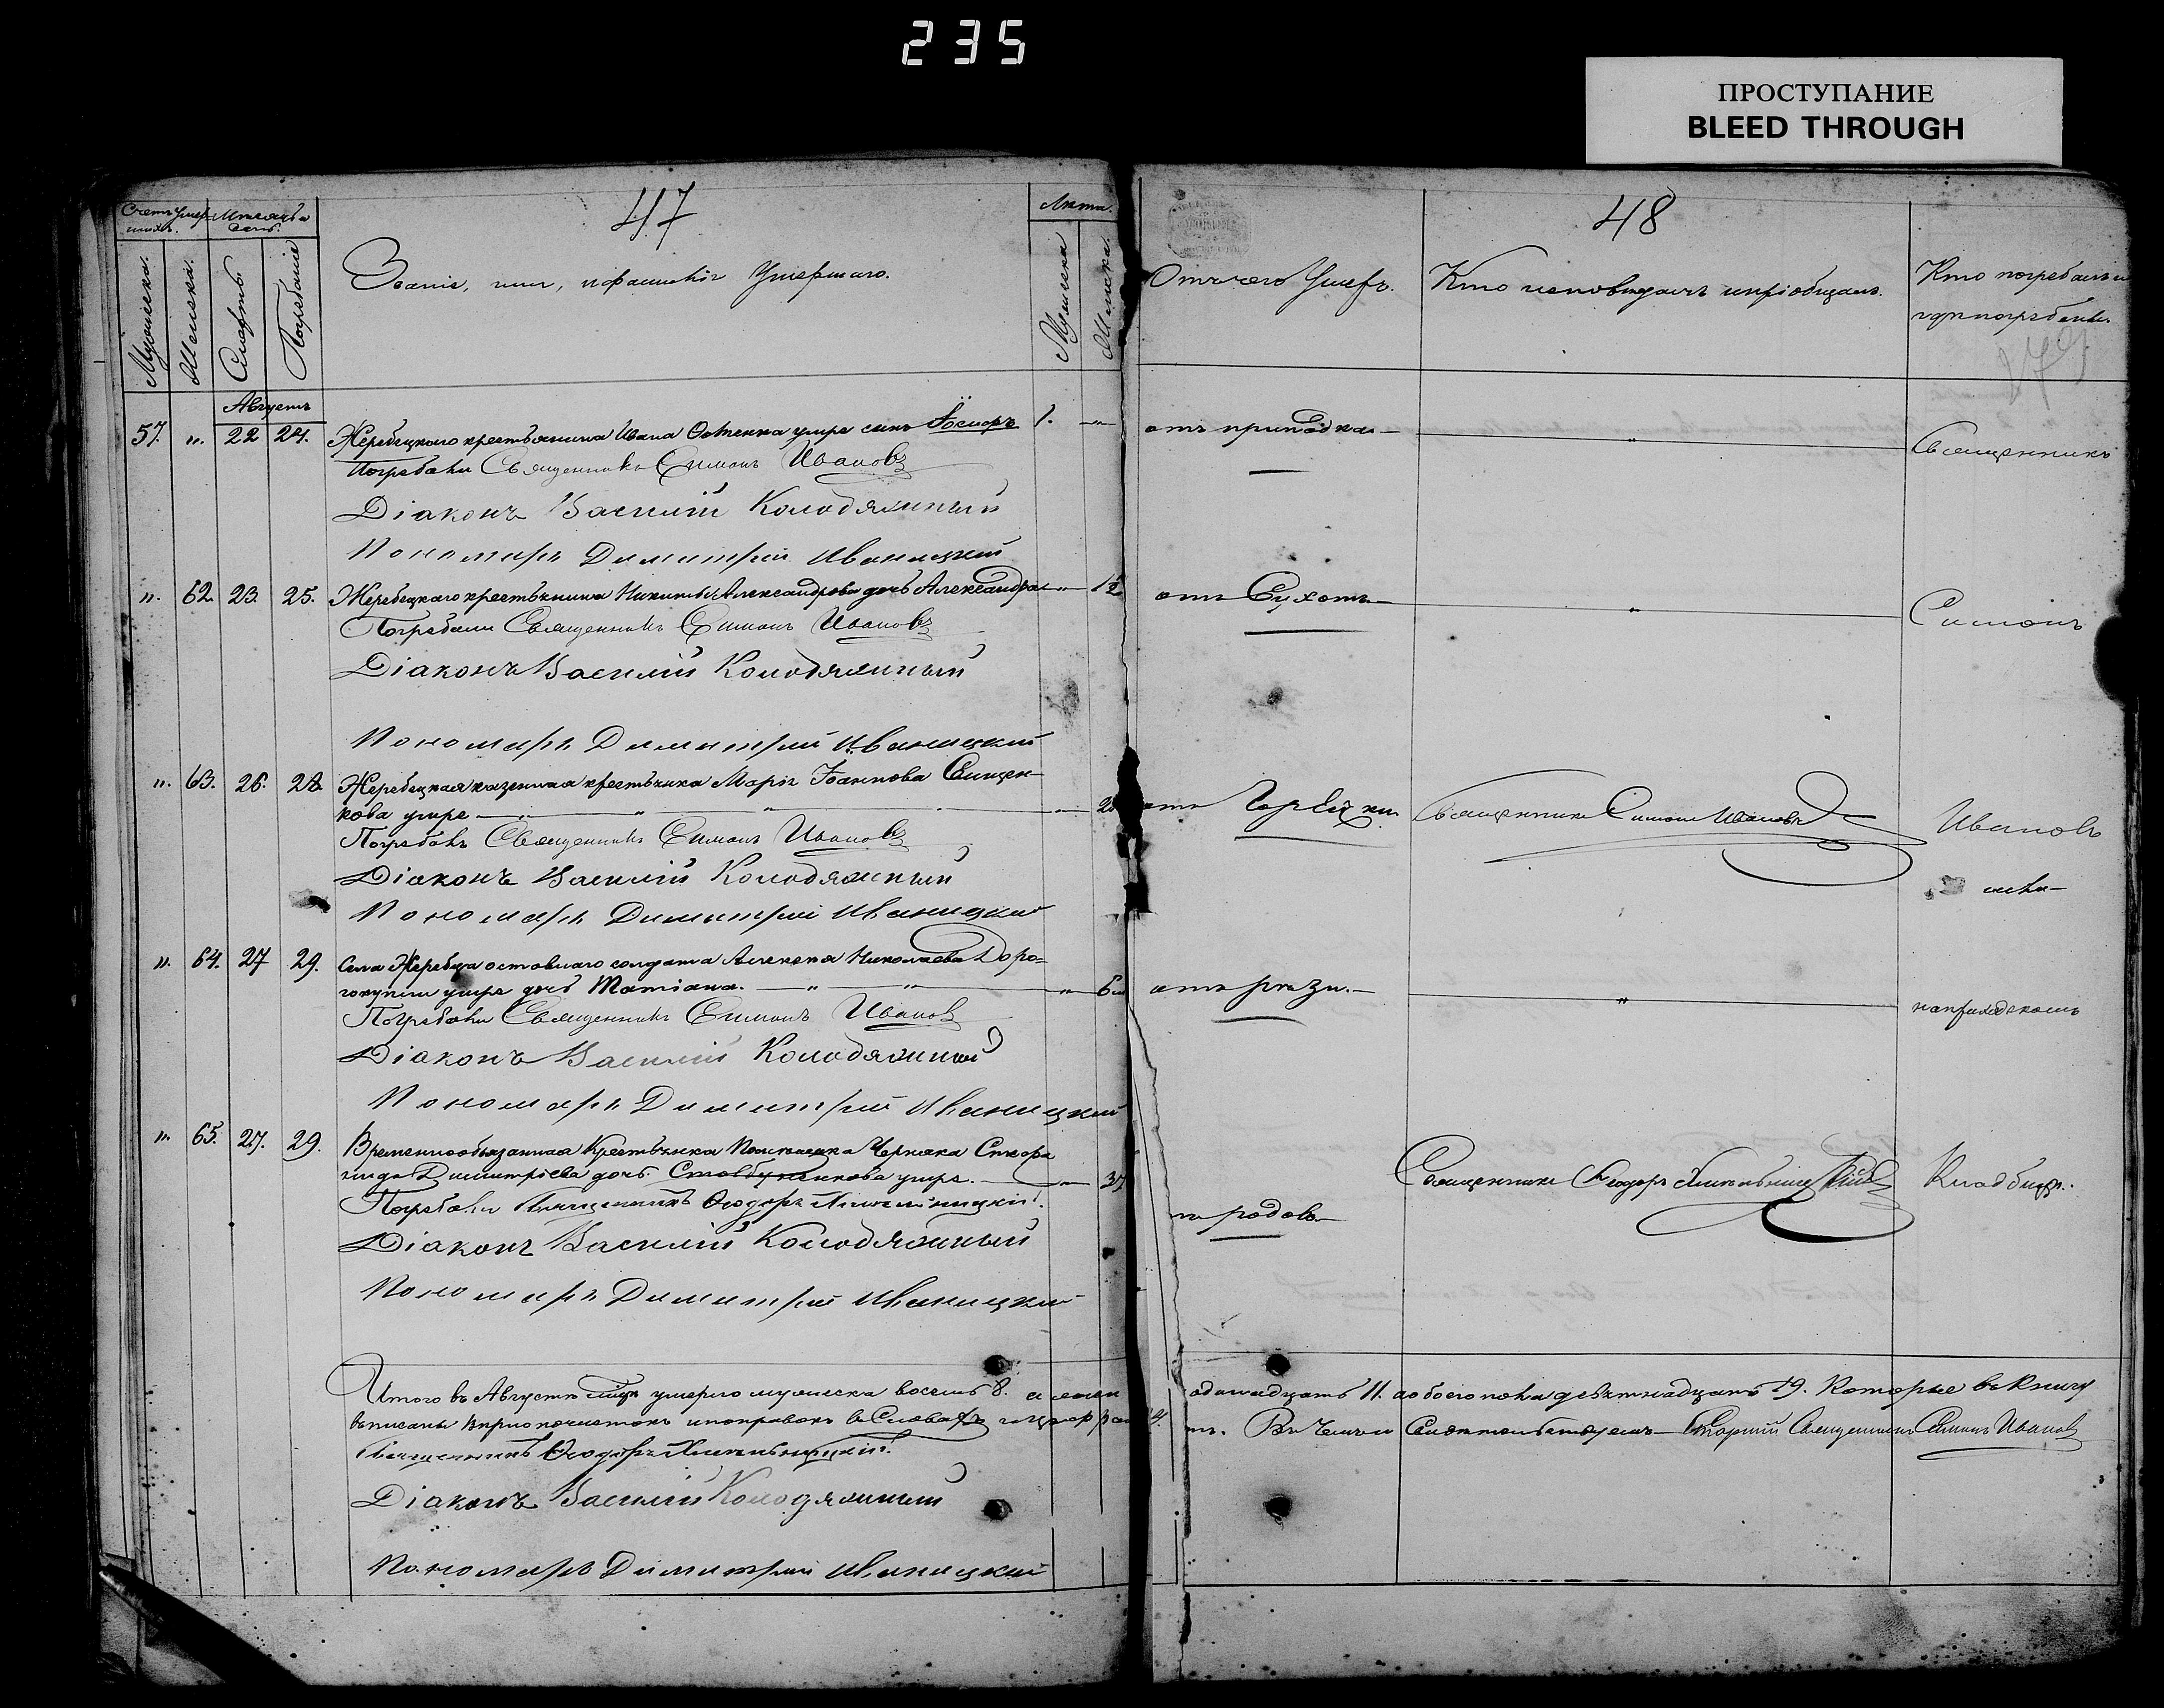 235
ПРОСТУПАНИЕ
BLEED THROUGH
47
48
Счетъ умер-
шихъ.
Мѣсяцъ и
день.
Лѣта.
Мужеска.
Женска.
Смерть
Погребаніе
Званіе, имя, и фамилія Умершаго.
Мужеска
Женска.
Отъ чего Умеръ.
Кто исповѣдалъ и пріобщалъ.
Кто погребалъ и
гдѣ погребены
Августъ
57. ". 22 24. Жеребецкого крестьянина умре сынъ 1. — отъ припадка — " Священникъ
Погребали Священникъ Симонъ Ивановъ
Діаконъ Василій Колодяжный
Пономарь Димитрій Иваницкій
". 62. 23. 25. Жеребецкаго крестьянина Никиты Александрова дочь Александра — " — отъ Сухотъ — " Симонъ
Погребали Священникъ Симонъ Ивановъ
Діаконъ Василій Колодяжный
Пономарь Димитрій Иваницкій
". 63. 26. 28. Жеребецкая казенная крестьянка Марія Іоаннова
кова умре — " " — отъ Горячки. Священникъ Симонъ Ивановъ Ивановъ
Погребалъ Священникъ Симонъ Ивановъ
Діаконъ Василій Колодяжный
Пономарь Димитрій Иваницкій
". 64. 27 29. Села Жеребца отставнаго солдата Алексея Николаева Доро=
гокупли умре дочь Татіана. — " " — " — 6 отъ — " на приходскомъ
Погребали Священникъ Симонъ Ивановъ
Діаконъ Василій Колодяжный
Пономарь Димитрій Иваницкій
". 65. 27. 29. Временнообязанная Крестьянка Помѣщика Черняка
нида Димитріева дочь умре. — " — 37 родовъ — Священникъ Ѳеодоръ Кладбищѣ.
Погребали Священникъ Ѳеодоръ
Діаконъ Василій Колодяжный
Пономарь Димитрій Иваницкій
Итого въ Августѣ мцѣ умерло мужеска восемь 8. а женск одинадцать 11. а обоего пола девятнадцать 19. Которые въ Книгу
вписаны въ Словахъ Въ Чемъ и Свидѣтельствуемъ — Старшій Священникъ Симонъ Ивановъ
Священникъ Ѳеодоръ
Діаконъ Василій Колодяжный
Пономарь Димитрій Иваницкій